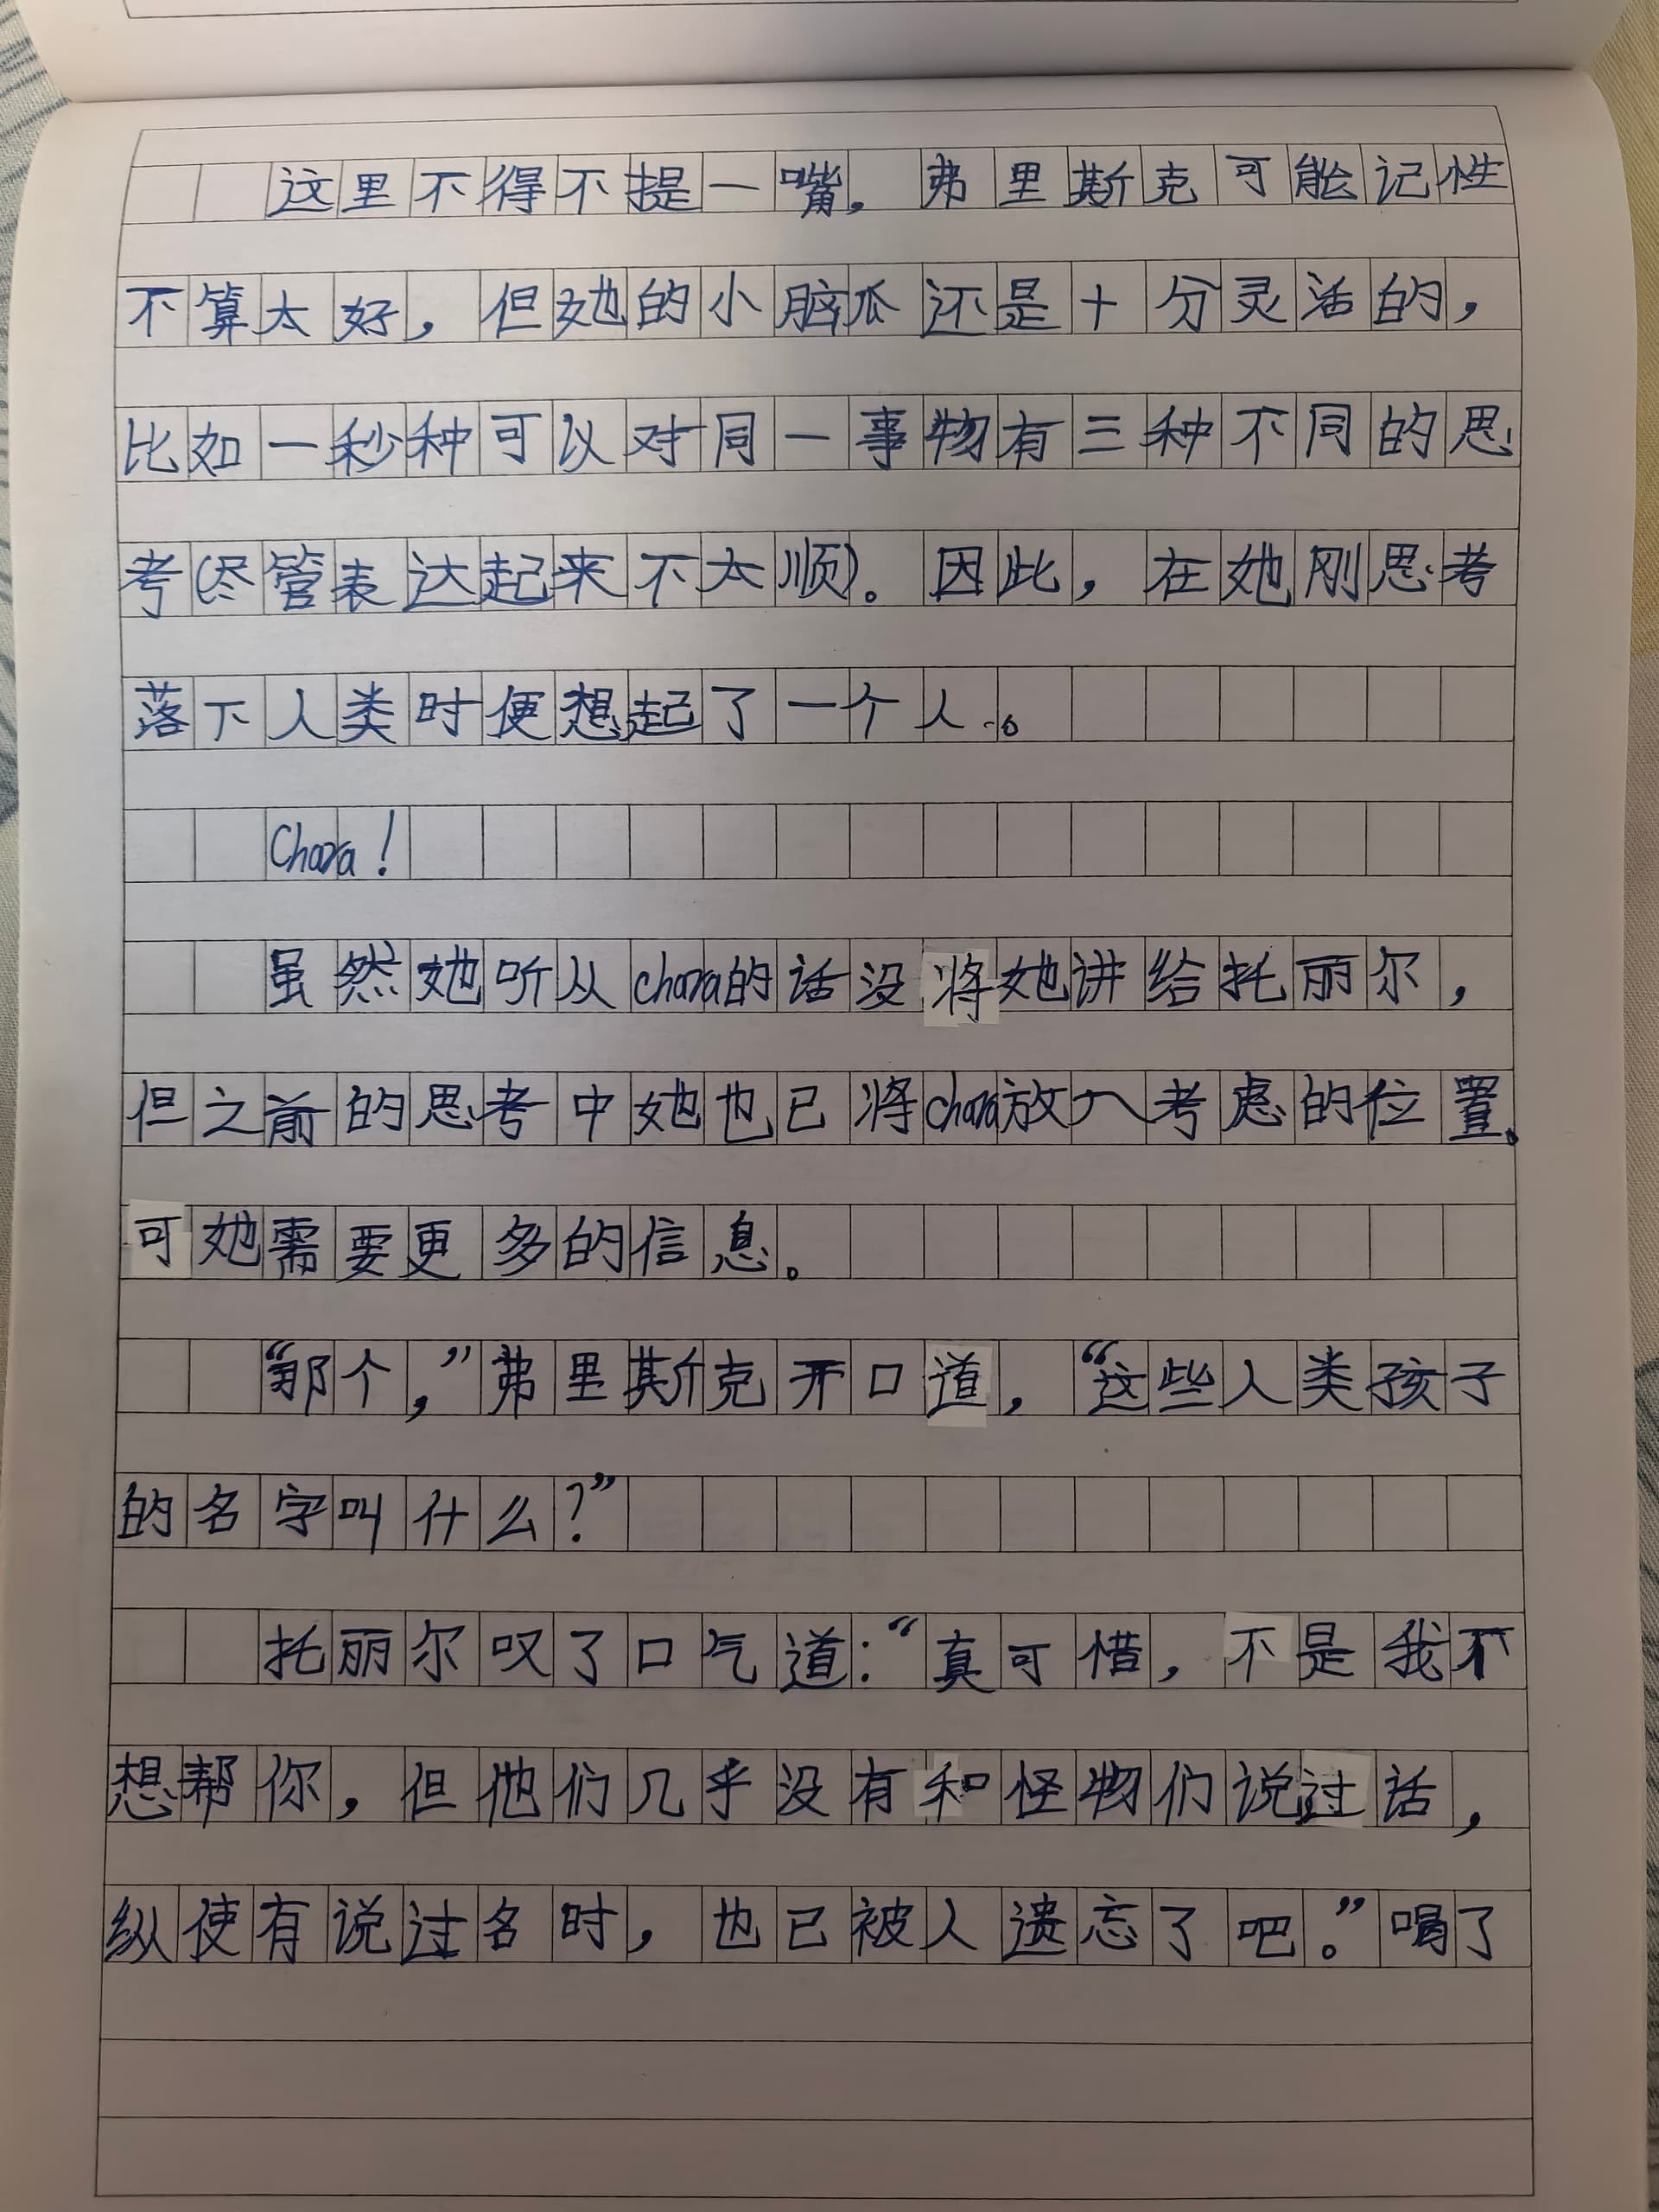 这里不得不提一嘴，弗里斯克可能记性
不算太好，但她的小脑瓜还是十分灵活的，
比如一秒种可以对同一事物有三种不同的思
考(尽管表达起来不太顺)。因此，在她刚思考
落下人类时便想起了一个人。
Chara！
虽然她听从chara的话没将她讲给托丽尔，
但之前的思考中她也已将chara放入考虑的位置，
可她需要更多的信息。
“那个，”弗里斯克开口道，“这些人类孩子
的名字叫什么？”
托丽尔叹了口气道：“真可惜，不是我不
想帮你，但他们几乎没有和怪物们说过话，
纵使有说过名时，也已被人遗忘了吧。”喝了